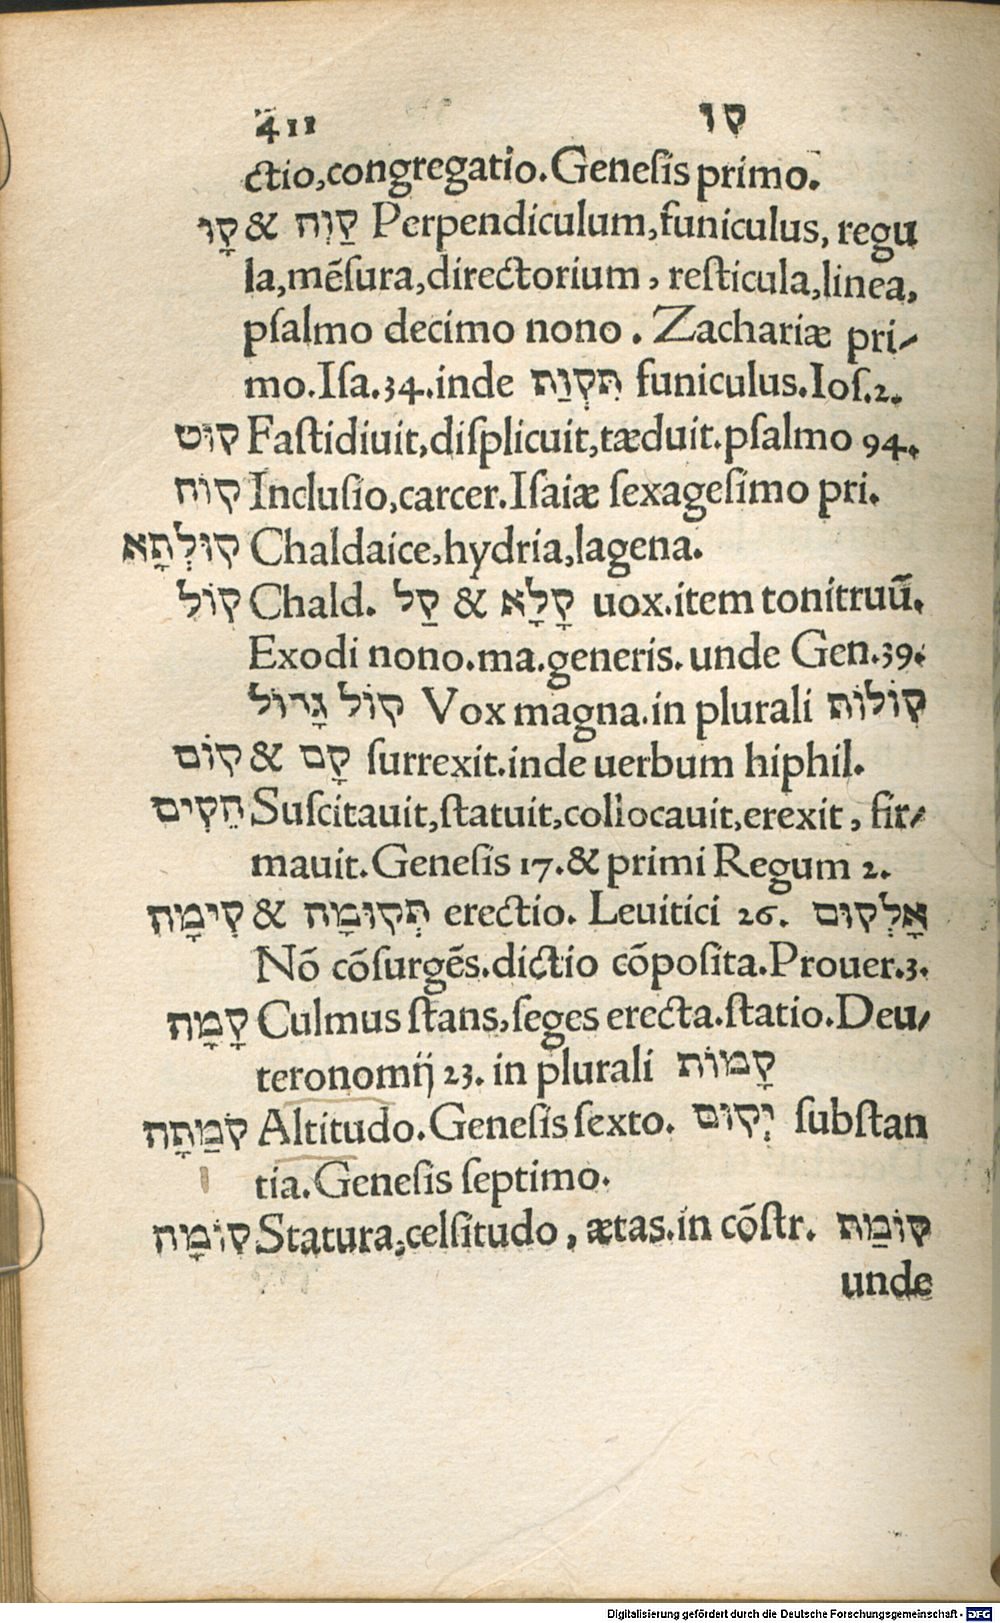 411 קו
ctio,congregatio.Geneſis primo.
קָו & קַוְה Perpendiculum,funiculus, regu
la,mẽſura,directorium, reſticula,linea,
pſalmo decimo nono. Zachariæ pri-
mo.Iſa.34.inde תִּקְוַת funiculus.Ioſ.2.
קוּט Faſtidiuit,diſplicuit,tæduit.pſalmo 94.
קוֹח Incluſio,carcer.Iſaiæ ſexageſimo pri.
קוּלְתָא Chaldaice,hydria,lagena.
קוֹל Chald. קַל & קָלָא uox.item tonitruũ.
Exodi nono.ma.generis.unde Gen.39.
קוֹל גָדוֹל Vox magna.in plurali קוֹלוֹת
קוֹם & קָם ſurrexit.inde uerbum hiphil.
הֵקִים Suſcitauit,ſtatuit,collocauit,erexit, fir-
mauit.Geneſis 17.& primi Regum 2.
קִימָה & תְּקוּמָה erectio. Leuitici 26. אָלְקוּם
Nõ cõſurgẽs.dictio cõpoſita.Prouer.3.
קָמָה Culmus ſtans,ſeges erecta.ſtatio.Deu-
teronomij 23. in plurali קָמוֹת
קֹמַתָה Altitudo.Geneſis ſexto. יְקוּם ſubſtan
tia.Geneſis ſeptimo.
קוֹמָה Statura,celſitudo, ætas.in cõſtr. קוֹמַת
unde
Digitalisierung gefördert durch die Deutsche Forschungsgemeinschaft - DFG